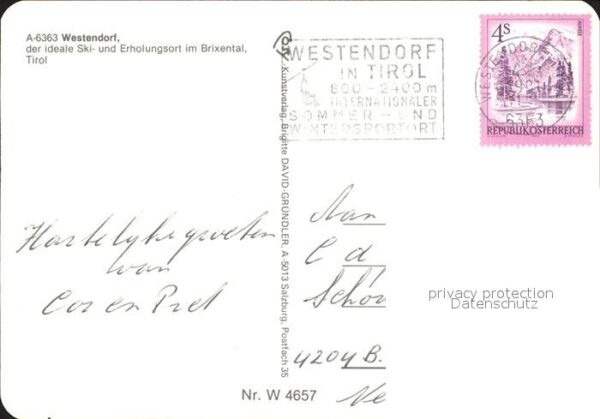 A-6363 Westendorf,
der ideale Ski- und Erholungsort im Brixental,
Tirol
WESTENDORF
IN TIROL
800-2400 m
INTERNATIONALER
SOMMER- UND
WINTERSPORTORT
4S
ALMSEE
REPUBLIK ÖSTERREICH
WESTENDORF
6363
Kunstverlag, Brigitte DAVID-GRÜNDLER, A-5013 Salzburg, Postfach 35
Hartelyke groeten
van
Cor en Piet
Aan
C d
Schón
4204 B.
Ne
privacy protection
Datenschutz
Nr. W 4657